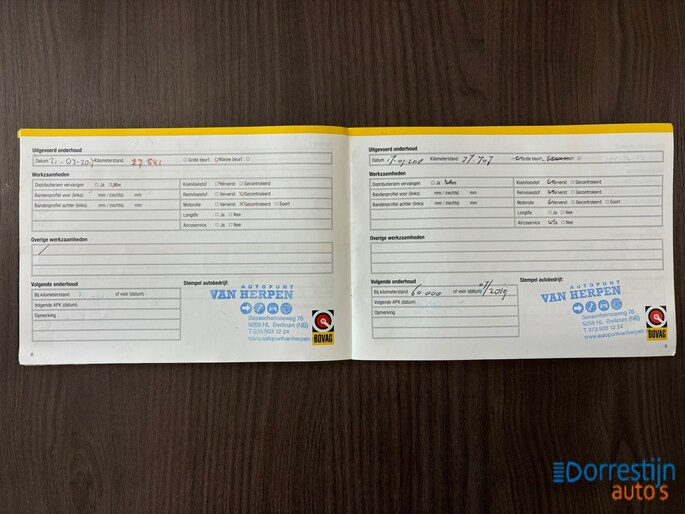 Uitgevoerd onderhoud
Datum Kilometerstand ☐ Grote beurt ☑ Kleine beurt ☐
Werkzaamheden
Distributieriem vervangen ☐ Ja ☑ Nee Koelvloeistof ☐ Ververst ☐ Gecontroleerd
Bandenprofiel voor (links) mm / (rechts) mm Remvloeistof ☐ Ververst ☑ Gecontroleerd
Bandenprofiel achter (links) mm / (rechts) mm Motorolie ☐ Ververst ☐ Gecontroleerd ☐ Soort
Longlife ☐ Ja ☐ Nee
Aircoservice ☐ Ja ☐ Nee
Overige werkzaamheden
Volgende onderhoud
Stempel autobedrijf:
Bij kilometerstand of voor (datum)
Volgende APK (datum)
Opmerking
AUTOPUNT
VAN HERPEN
5258 HL Berlicum (NB)
T 073 503 12 24
www.autopuntvanherpen
BOVAG
Uitgevoerd onderhoud
Datum Kilometerstand 37.707
Werkzaamheden
Distributieriem vervangen ☐ Ja ☑ Nee Koelvloeistof ☑ Ververst ☐ Gecontroleerd
Bandenprofiel voor (links) mm / (rechts) mm Remvloeistof ☑ Ververst ☐ Gecontroleerd
Bandenprofiel achter (links) mm / (rechts) mm Motorolie ☑ Ververst ☐ Gecontroleerd ☐ Soort
Longlife ☐ Ja ☐ Nee
Aircoservice ☑ Ja ☐ Nee
Overige werkzaamheden
Volgende onderhoud
Stempel autobedrijf:
Bij kilometerstand 60.000 of voor (datum) 07/2019
Volgende APK (datum)
Opmerking
AUTOPUNT
VAN HERPEN
5258 HL Berlicum (NB)
T 073 503 12 24
www.autopuntvanherpen
BOVAG
Dorrestijn
auto's